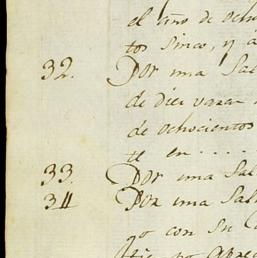 el año de ocho
tos sinco, y a
32. Por una Sal
de diez varas
de ochocientos
te en ....
33. Por una Sal
34 Por una Sal
go con su